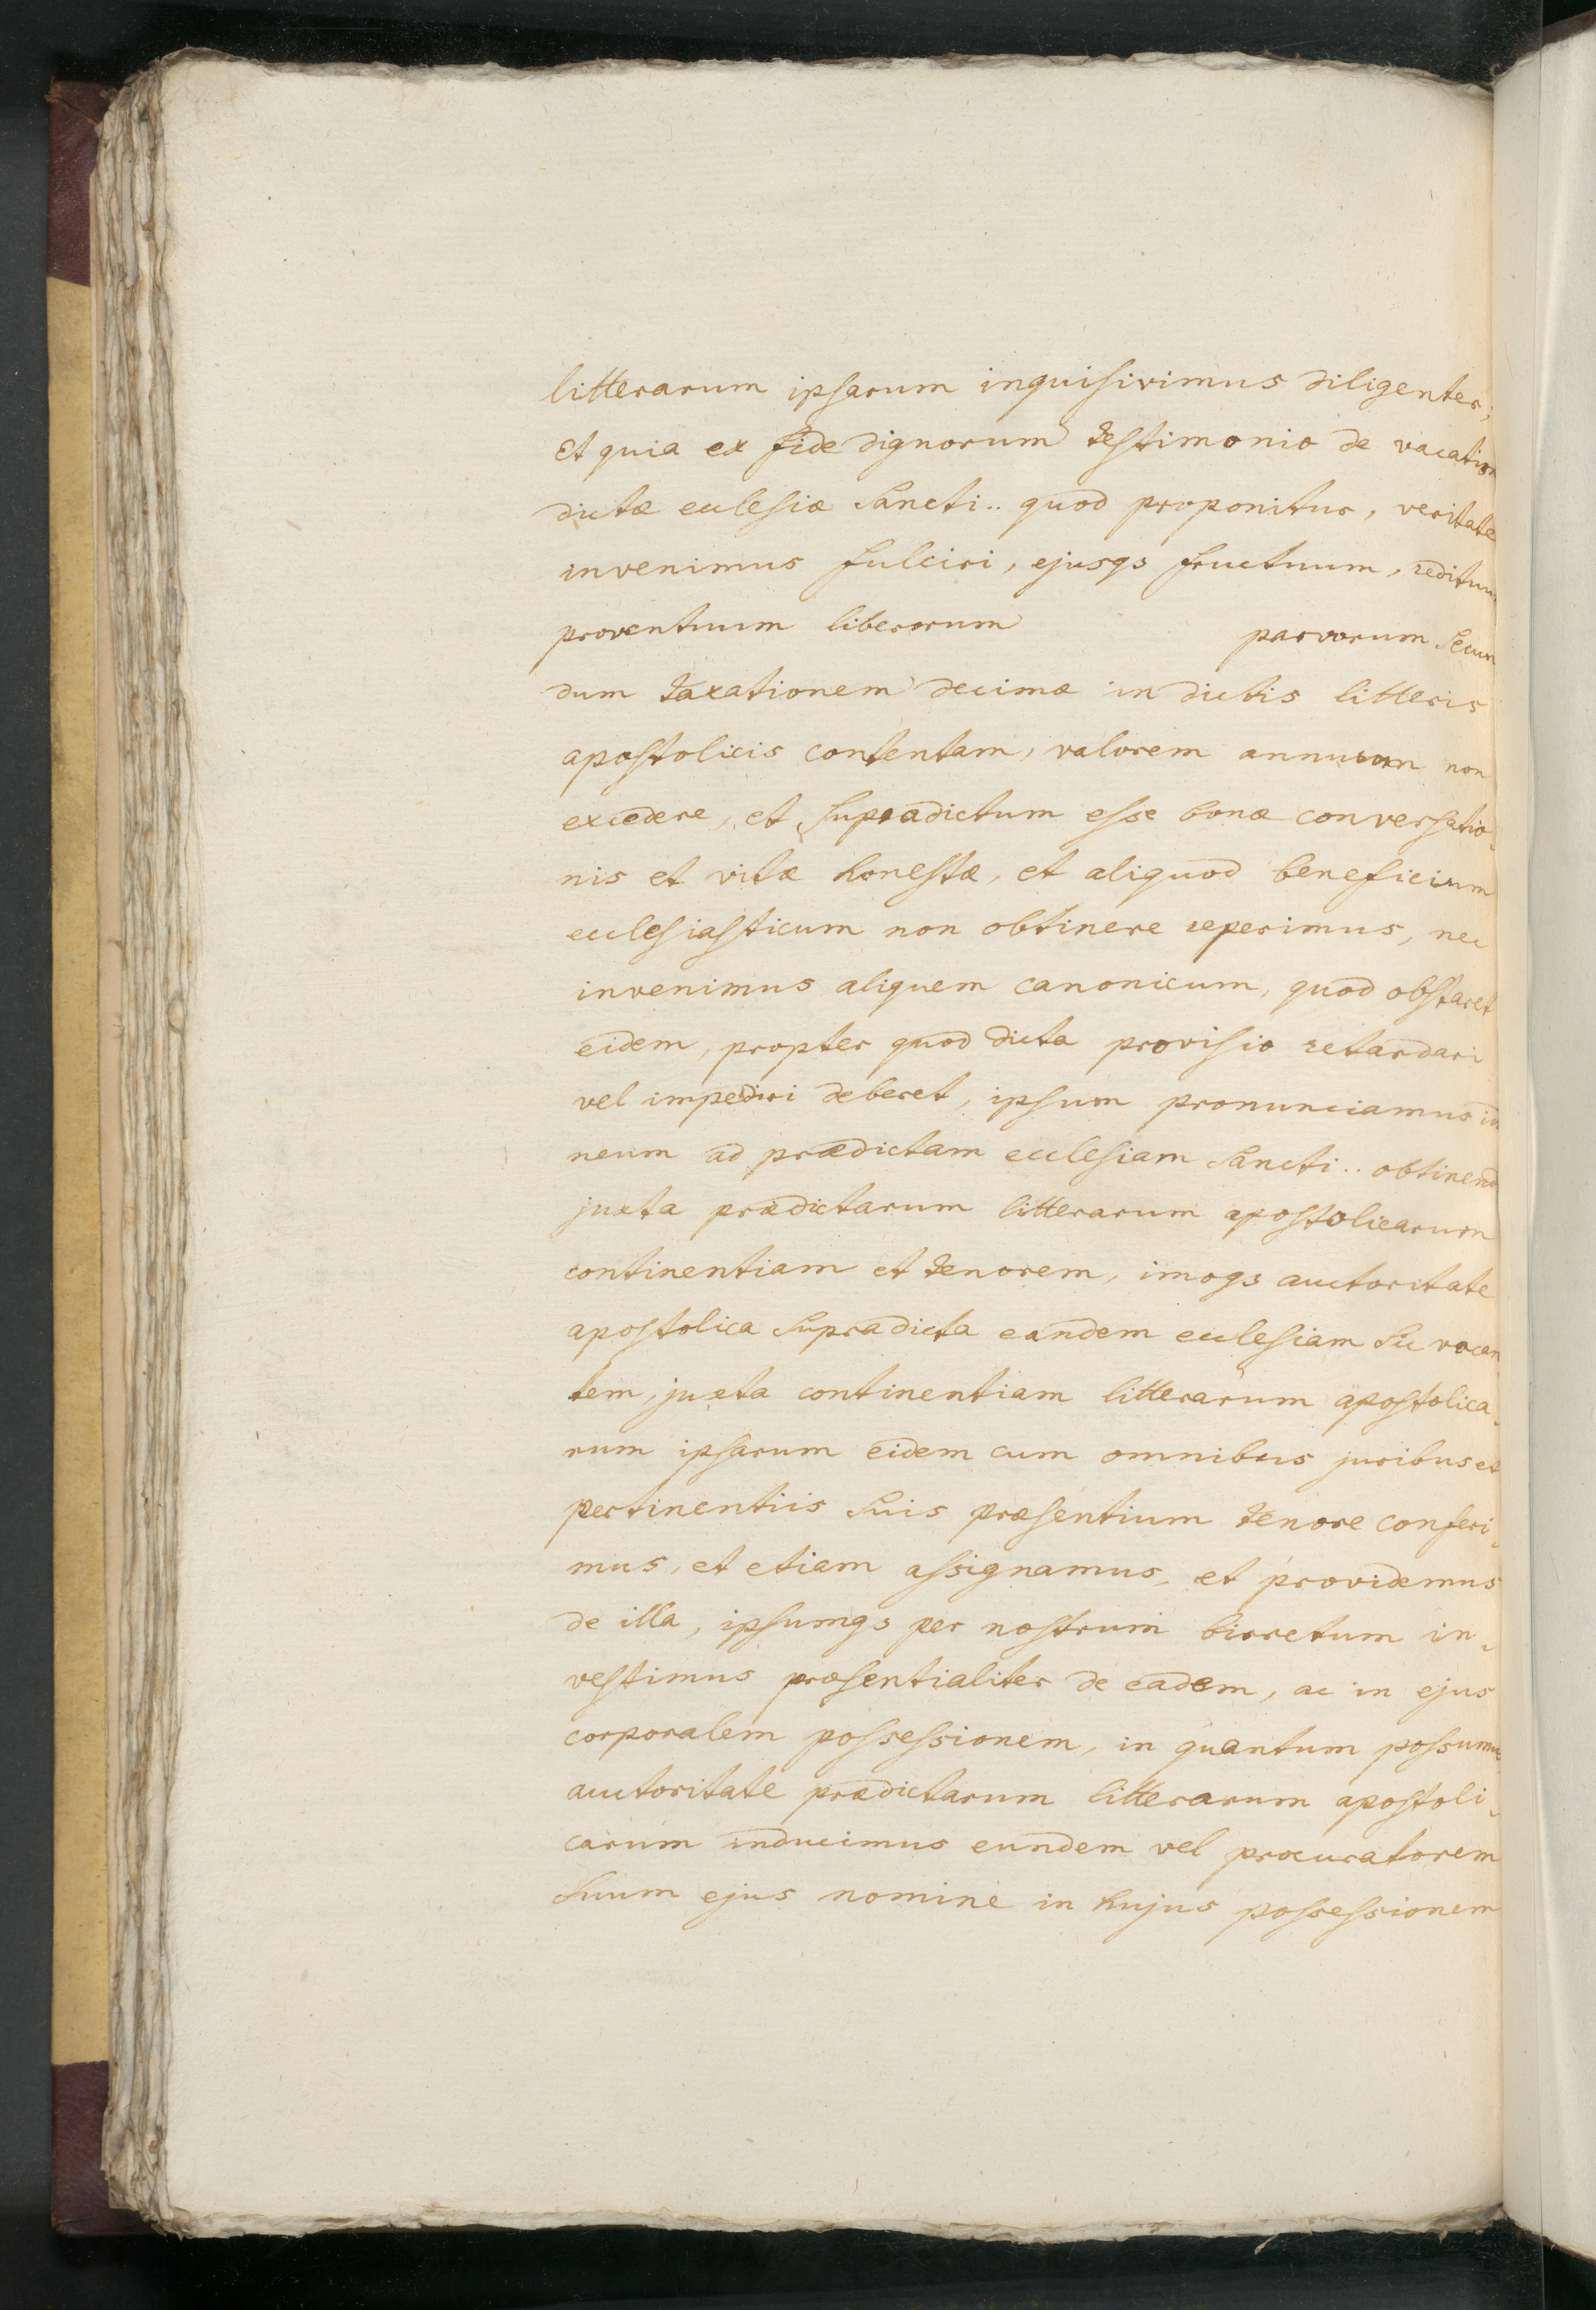 litterarum ipsarum inquisivimus diligenter,
Et quia ex fide dignorum testimonio de vacation
dictæ ecclesiæ Sancti.. quod proponitur, veritate
invenimus fulciri, ejusqs fructuum, redituum
proventuum liberorum parvorum Secun
dum taxationem decimæ in dictis litteris
apostolicis contentam, valorem annuum non
excedere, et Supradictum esse bonæ conversatio-
nis et vitæ honestæ, et aliquod beneficium
ecclesiasticum non obtinere reperimus, nec
invenimus aliquem canonicum, quod obstaret
eidem, propter quod dicta provisio retardari
vel impediri deberet, ipsum pronunciamus ido
neum ad prædictam ecclesiam Sancti.. obtinend
juxta prædictarum litterarum apostolicarum
continentiam et tenorem, imoqs auctoritate
apostolica Supradicta eandem ecclesiam Sic vacan
tem, juxta continentiam litterarum apostolica-
rum ipsarum eidem cum omnibus juribus et
pertinentiis Suis præsentium tenore conferi-
mus, et etiam assignamus, et providemus
de illa, ipsumqs per nostrum birretum in-
vestimus præsentialiter de eadem, ac in ejus
corporalem possessionem, in quantum possumus
auctoritate prædictarum litterarum apostoli-
carum inducimus eundem vel procuratorem
Suum ejus nomine in hujus possessionem